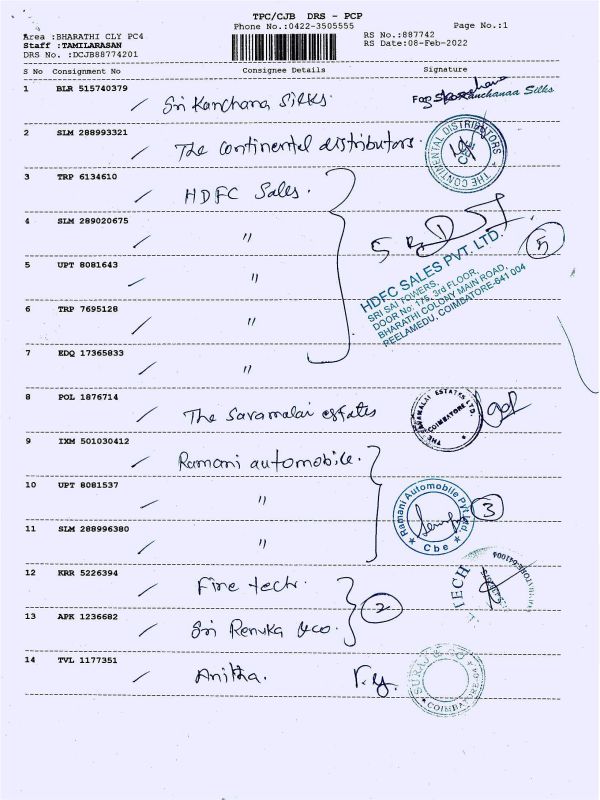 TPC/CJB DRS - PCP
Phone No.:0422-3505555 Page No.:1
Area :BHARATHI CLY PC4 RS No.:887742
Staff :TAMILARASAN RS Date:08-Feb-2022
DRS No. :DCJB88774201
S No Consignment No Consignee Details Signature
1 BLR 515740379 Sri Kanchana Silks. For Sri Kanchanaa Silks
2 SLM 288993321 The Continental distributors. THE CONTINENTAL DISTRIBUTORS
3 TRP 6134610 HDFC Sales.
4 SLM 289020675 "
5 UPT 8081643 " 5
HDFC SALES PVT. LTD.
SRI SAI TOWERS,
DOOR No: 175, 3rd FLOOR,
BHARATHI COLONY MAIN ROAD,
PEELAMEDU, COIMBATORE-641 004
6 TRP 7695128 "
7 EDQ 17365833 "
8 POL 1876714 The Savamalai estates COIMBATORE
9 IXM 501030412 Ramani automobile.
10 UPT 8081537 " Ramani Automobile Pvt Ltd 3
11 SLM 288996380 " Cbe
12 KRR 5226394 Fine tech. TECH
13 APK 1236682 Sri Renuka &co. 2
14 TVL 1177351 Anitha. SURAJ COIMBATORE